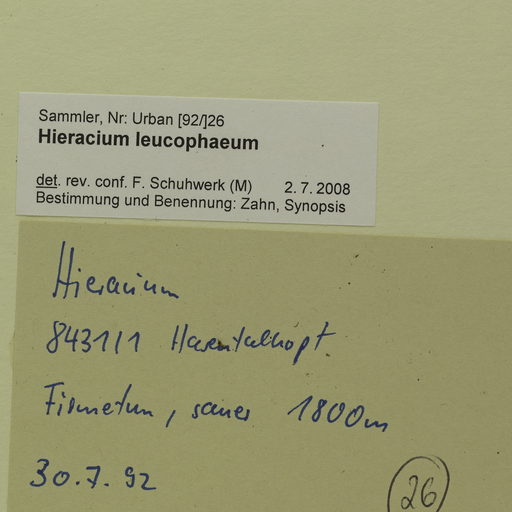 Sammler, Nr: Urban [92/]26
Hieracium leucophaeum
det. rev. conf. F. Schuhwerk (M) 2. 7. 2008
Bestimmung und Benennung: Zahn, Synopsis
Hieracium
8431/1 Hasentalkopf
Firmetum, sauer 1800m
30.7.92
26